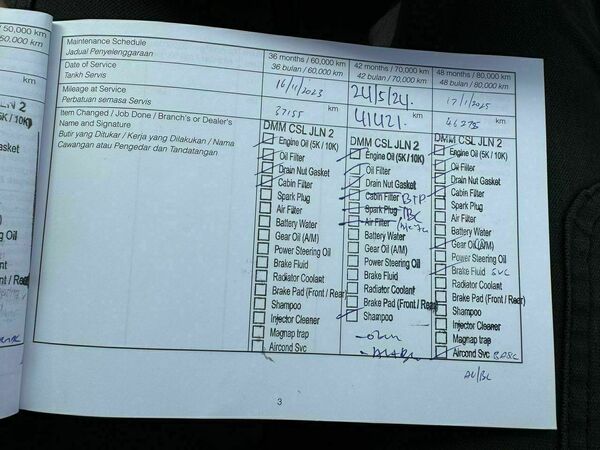 / 50,000 km
50.000 km
km
JLN 2
5K / 10K)
asket
Oil
Front / Rear
Maintenance Schedule
Jadual Penyelenggaraan
36 months / 60,000 km
36 bulan / 60,000 km
42 months / 70,000 km
42 bulan / 70,000 km
48 months / 80,000 km
48 bulan / 80,000 km
Date of Service
Tarikh Servis
16/11/2023
24/5/24.
17/1/2025
Mileage at Service
Perbatuan semasa Servis
37155 km
41421. km
46275 km
Item Changed / Job Done / Branch's or Dealer's
Name and Signature
Butir yang Ditukar / Kerja yang Dilakukan / Nama
Cawangan atau Pengedar dan Tandatangan
DMM CSL JLN 2
Engine Oil (5K / 10K)
Oil Filter
Drain Nut Gasket
Cabin Filter
Spark Plug
Air Filter
Battery Water
Gear Oil (A/M)
Power Steering Oil
Brake Fluid
Radiator Coolant
Brake Pad (Front / Rear)
Shampoo
Injector Cleaner
Magnap trap
Aircond Svc
DMM CSL JLN 2
Engine Oil (5K / 10K)
Oil Filter
Drain Nut Gasket
Cabin Filter
Spark Plug
Air Filter
Battery Water
Gear Oil (A/M)
Power Steering Oil
Brake Fluid
Radiator Coolant
Brake Pad (Front / Rear)
Shampoo
DMM CSL JLN 2
Engine Oil (5K / 10K)
Oil Filter
Drain Nut Gasket
Cabin Filter
Spark Plug
Air Filter
Battery Water
Gear Oil (A/M)
Power Steering Oil
Brake Fluid SVC
Radiator Coolant
Brake Pad (Front / Rear)
Shampoo
Injector Cleaner
Magnap trap
Aircond Svc
3